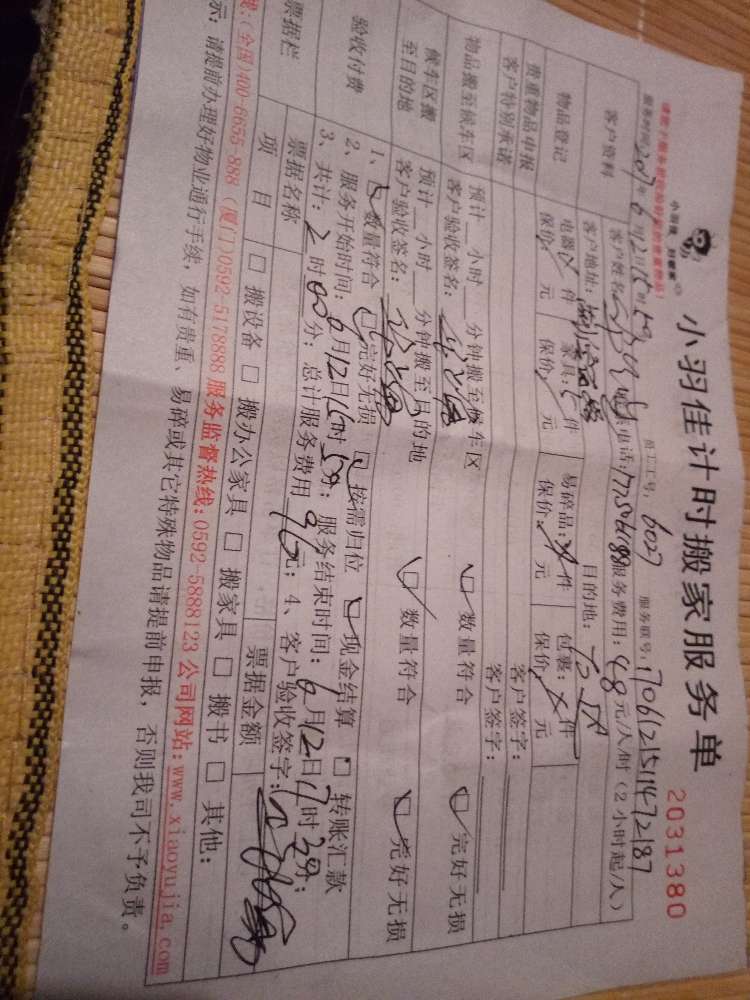 小羽佳计时搬家服务单
2031380
员工工号: 6027 服务联号: 1706121511472187
服务时间: 2017年6月12日15时
客户资料
客户姓名: 电话: 服务费用: 48元/人/时(2小时起/人)
客户地址: 目的地:
物品登记
电器: 件 家具: 件 易碎品: 件 包裹: 件
保价: 元 保价: 元 保价: 元 保价: 元
贵重物品申报 客户签字:
客户特别承诺 客户签字:
物品搬至候车区
预计__小时__分钟搬至候车区
客户验收签名: 数量符合 完好无损
候车区搬至目的地
预计__小时__分钟搬至目的地
客户验收签名: 数量符合 完好无损
验收付费
1、数量符合 完好无损 按需归位 现金结算 转账汇款
2、服务开始时间: 6月12日15时 分; 服务结束时间: 6月12日17时 分;
3、共计: 2时00分; 总计服务费用 96元; 4、客户验收签字:
票据栏
票据名称 票据金额
项目 搬设备 搬办公家具 搬家具 搬书 其他:
(全国)400-6655-888 (厦门)0592-5178888 服务监督热线:0592-5888123 公司网站:www.xiaoyujia.com
示: 请提前办理好物业通行手续, 如有贵重、易碎或其它特殊物品请提前申报, 否则我司不予负责。